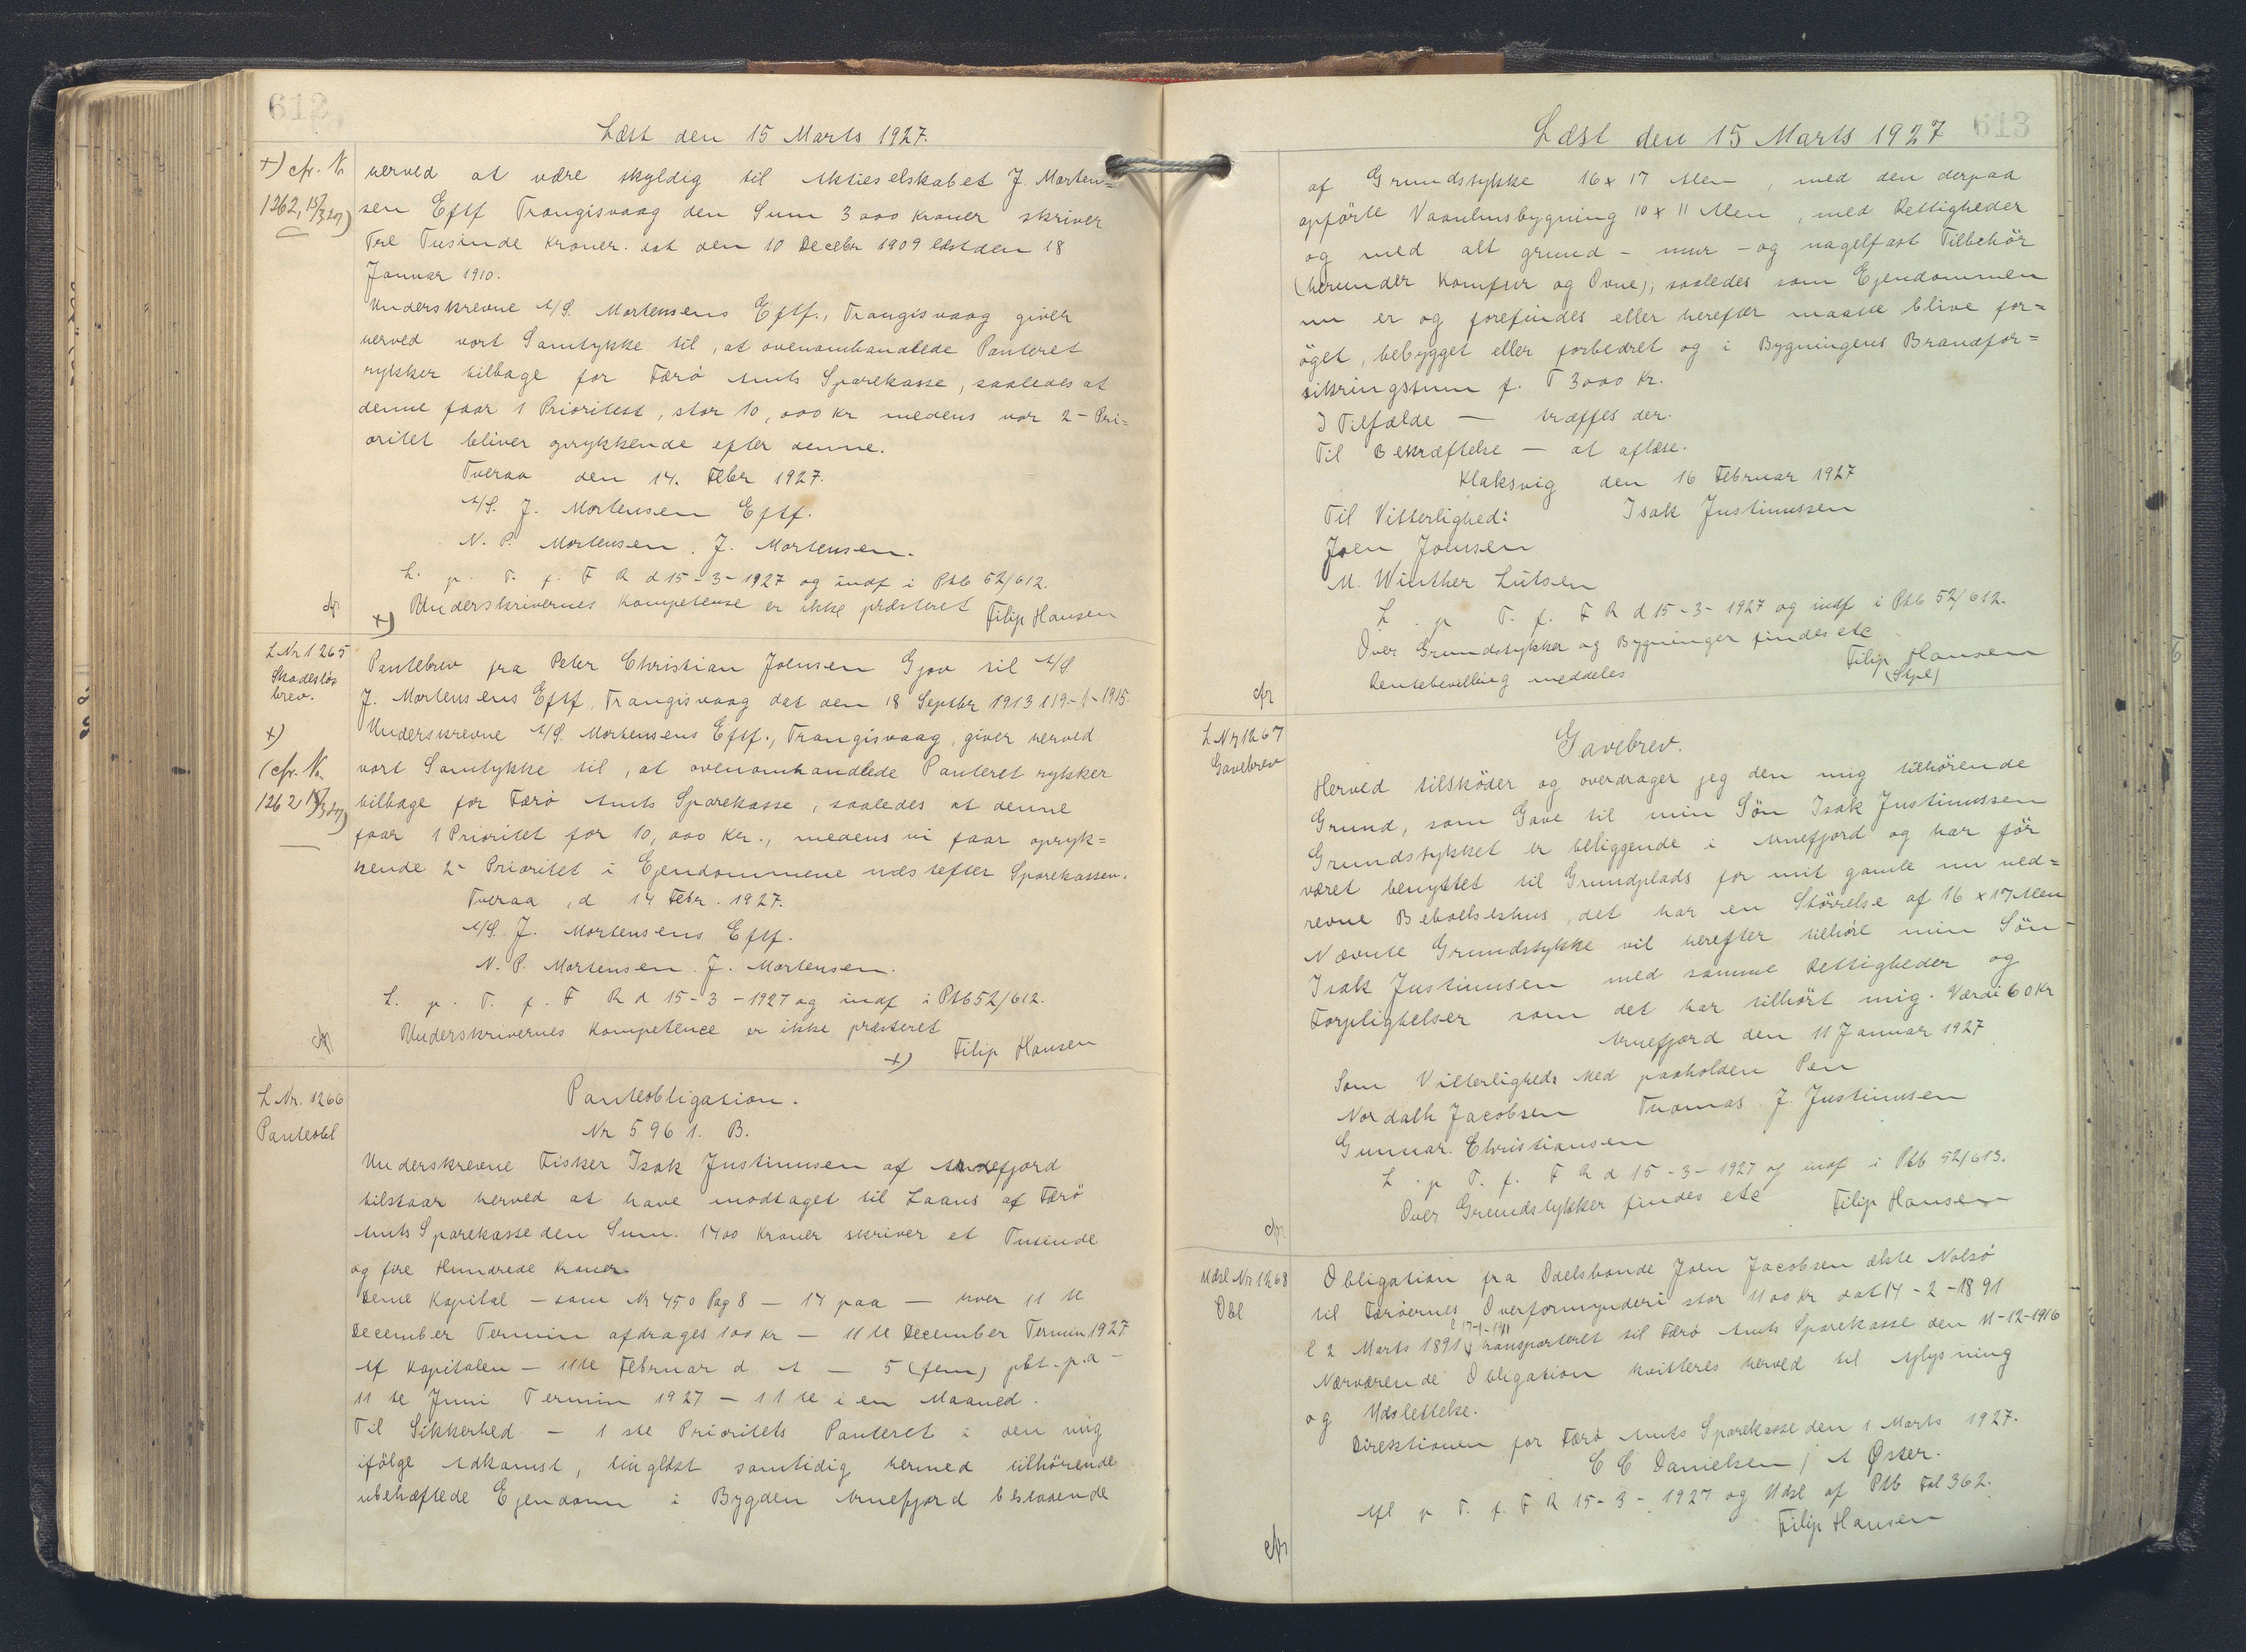 612
Læst den 15 Marts 1927.
+) cfr. No
1262, 15/3 27)
herved at være skyldig til Aktieselskabet J. Morten=
sen Eftf Trangisvaag den Sum 3000 Kroner skriver
Tre Tusinde Kroner. dat den 10 Decebr 1909 læst den 18
Januar 1910.
Underskrevne A/S. Mortensens Eftf., Trangisvaag giver
herved vort Samtykke til, at ovenomhandlede Panteret
rykker tilbage for Færø Amts Sparekasse, saaledes at
denne faar 1 Prioritest, stor 10,000 Kr medens vor 2- Pri=
oritet bliver oprykkende efter denne.
Tveraa den 14. Febr 1927.
A/S. J. Mortensen Eftf.
N. P. Mortensen. J. Mortensen.
L. p. T. f. F R d 15-3-1927 og indf i Ptb 52/612.
Underskrivernes Kompetense er ikke præsteret
+) Filip Hansen
cfr
L Nr 1265
Skadesløs
brev.
+)
(cfr. No
1262 15/3 27)
Pantebrev fra Peter Christian Joensen Gjov til A/S
J. Mortensens Eftf, Trangisvaag dat den 18 Septbr 1913 l 19-1-1915.
Underskrevne A/S. Mortensens Eftf., Trangisvaag, giver herved
vort Samtykke til, at ovenomhandlede Panteret rykker
tilbage for Færø Amts Sparekasse, saaledes at denne
faar 1 Prioritet for 10,000 Kr., medens vi faar opryk=
kende 2- Prioritet i Ejendommene næstefter Sparekassen.
Tveraa, d 14 Febr. 1927.
A/S J. Mortensens Eftf.
N. P. Mortensen. J. Mortensen.
L. p. T. f. F R d 15-3-1927 og indf i Ptb 52/612.
Underskrivernes Kompetence er ikke præsteret
+) Filip Hansen
cfr
L Nr. 1266
Panteobl
Panteobligation.
Nr 5961. B.
Underskrevne Fisker Isak Justinusen af Arnefjord
tilstaar herved at have modtaget til Laans af Færø
Amts Sparekasse den Sum. 1400 Kroner skriver et Tusinde
og fire Hundrede Kroner.
Denne Kapital - som Nr 450 Pag 8 - 14 paa - hver 11 te
December Termin afdrages 100 Kr - 11 te December Termin 1927
Af Kapitalen - 11te Februar d A - 5 (fem) pkt. p.a -
11 te Juni Termin 1927 - 11 te i en Maaned.
Til Sikkerhed - 1 ste Prioritets Panteret i den mig
ifölge Adkomst, tinglæst samtidig hermed tilhörende
ubehæftede Ejendom i Bygden Arnefjord bestaaende
613
Læst den 15 Marts 1927
af Grundstykke 16 x 17 Alen, med den derpaa
opförte Vaaningsbygning 10 x 11 Alen, med Rettigheder
og med alt grund - mur - og nagelfast Tilbehör
(herunder Komfur og Ovne), saaledes som Ejendommen
nu er og forefindes eller herefter maatte blive for=
öget, bebygget eller forbedret og i Bygningens Brandfor=
sikringssum f. T 3000 Kr.
I Tilfælde - træffes der.
Til Bekræftelse - at aflæse.
Klaksvig den 16 Februar 1927
Til Vitterlighed: Isak Justinussen
Joen Joensen
M. Winther Lützen
L. p T. f. F R d 15-3-1927 og indf i Ptb 52/612.
Over Grundstykker og Bygninger findes etc
Rentebevilling meddeles Filip Hansen
(Stpl)
cfr
L Nr 1267
Gavebrev
Gavebrev.
Herved tilsköder og overdrager jeg den mig tilhörende
Grund, som Gave til min Sön Isak Justinussen
Grundstykket er beliggende i Arnefjord og har för
været benyttet til Grundplads for mit gamle nu ned=
revne Beboelseshus, det har en Störrelse af 16 x 17 Alen
Nævnte Grundstykke vil herefter tilhöre min Sön
Isak Justinusen med samme Rettigheder og
Forpligtelser som det har tilhört mig. Værdi 60 Kr
Arnefjord den 11 Januar 1927
Som Vitterligheds Med paaholden Pen
Nordalh Jacobsen Thomas J. Justinusen
Gunnar. Christiansen
L. p T. f. F R d 15-3-1927 og indf i Ptb 52/613.
Over Grundstykker findes etc Filip Hansen
cfr.
Udsl Nr 1268
Obl
Obligation fra Odelsbonde Joen Jacobsen ækte Nolsö
til Færöernes Overformynderi stor 1100 Kr dat 14-2-1891
l 2 Marts 1891 l 17-1-1911 transporteret til Færö Amts Sparekasse den 11-12-1916
Nærværende Obligation kvitteres herved til Aflysning
og Udslettelse.
Direktionen for Færö Amts Sparekasse den 1 Marts 1927.
C C Danielsen / A Øster.
Afl p T. f. F R 15-3-1927 og Udsl af Ptb Fol 362.
Filip Hansen
cfr